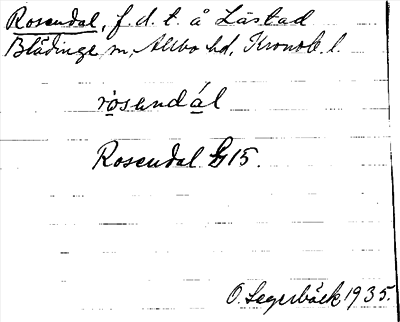 Rosendal, f. d. t. å Låstad
Blädinge sn, Allbo hd, Kronob. l.
rosendál
Rosendal G15.
O. Segerbäck 1935.